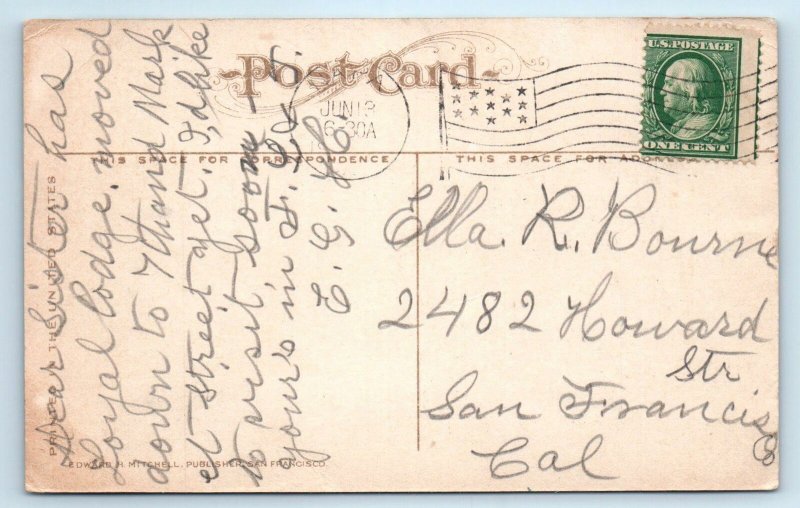 Post Card
U.S. POSTAGE
ONE CENT
JUN 13
6-30A
THIS SPACE FOR CORRESPONDENCE
THIS SPACE FOR ADDRESS
PRINTED IN THE UNITED STATES
Dear Sister has
Loyal Lodge. moved
down to 7th and Mark
et street yet. I,d like
to visit soon
your's in F. L. & T.
E. G. H.
Ella. R. Bourne
2482 Howard
Str
San Francisco
Cal
EDWARD H. MITCHELL, PUBLISHER, SAN FRANCISCO.